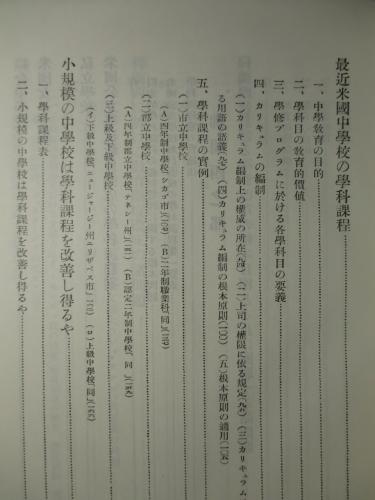 最近米國中學校の學科課程
一、中學敎育の目的
二、學科目の敎育的價値
三、學修プログラムに於ける各學科目の要義
四、カリキュラムの編制
（一）カリキュラム編制上の權威の所在（九四）（二）上司の權限に依る規定（九五）（三）カリキュラム
る用語の語義（九七）（四）カリキュラム編制の根本原則（一〇〇）（五）根本原則の適用（一〇五）
五、學科課程の實例
（一）市立中學校
（A）四年制中學校「シカゴ市」（B）二年制職業科「同」
（二）郡立中學校
（A）四年制郡立中學校「テネシー州」（B）認定二年制中學校「同」
（三）上級及下級中學校
（イ）下級中學校「ニュージャージー州エリザベス市」（ロ）上級中學校「同」
小規模の中學校は學科課程を改善し得るや
一、學科課程表
二、小規模の中學校は學科課程を改善し得るや